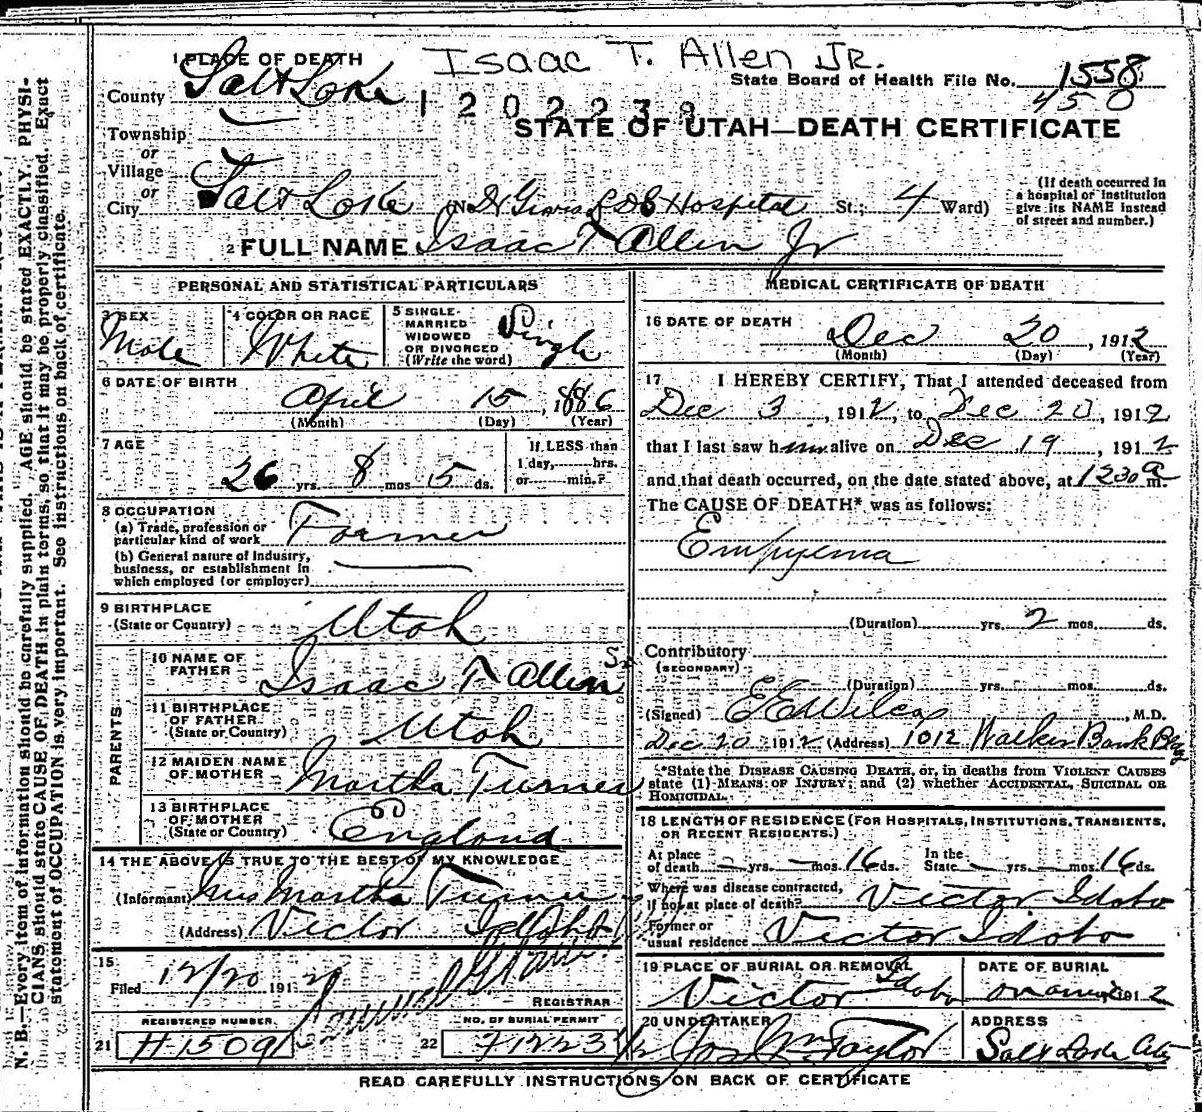 Isaac T. Allen JR.
1 PLACE OF DEATH
State Board of Health File No. 1558
County Salt Lake
1202239
450
STATE OF UTAH—DEATH CERTIFICATE
Township
or
Village
or
City Salt Lake (No. Dr Groves L D S Hospital St.; 4 Ward)
(If death occurred in a hospital or institution give its NAME instead of street and number.)
2 FULL NAME Isaac T Allen Jr
PERSONAL AND STATISTICAL PARTICULARS
3 SEX Male
4 COLOR OR RACE White
5 SINGLE- MARRIED WIDOWED OR DIVORCED (Write the word) Single
6 DATE OF BIRTH April 15, 1886
(Month) (Day) (Year)
7 AGE 26 yrs. 8 mos. 5 ds.
If LESS than 1 day,......hrs. or......min.?
8 OCCUPATION
(a) Trade, profession or particular kind of work Farmer
(b) General nature of Industry, business, or establishment in which employed (or employer)
9 BIRTHPLACE (State or Country) Utah
PARENTS
10 NAME OF FATHER Isaac T Allen Sr
11 BIRTHPLACE OF FATHER (State or Country) Utah
12 MAIDEN NAME OF MOTHER Martha Turner
13 BIRTHPLACE OF MOTHER (State or Country) England
14 THE ABOVE IS TRUE TO THE BEST OF MY KNOWLEDGE
(Informant) Mrs Martha Turner
(Address) Victor Idaho
15
Filed 12/20 191
REGISTRAR
REGISTERED NUMBER
NO. OF BURIAL PERMIT
21 H1509
22
MEDICAL CERTIFICATE OF DEATH
16 DATE OF DEATH Dec 20, 1912
(Month) (Day) (Year)
17 I HEREBY CERTIFY, That I attended deceased from
Dec 3, 1912, to Dec 20, 1912
that I last saw him alive on Dec 19, 1912
and that death occurred, on the date stated above, at 1230 a m.
The CAUSE OF DEATH* was as follows:
Empyema
(Duration) yrs. 2 mos. ds.
Contributory
(SECONDARY)
(Duration) yrs. mos. ds.
(Signed) E E Wilcox, M.D.
Dec 20 1912 (Address) 1012 Walker Bank Bldg
*State the DISEASE CAUSING DEATH, or, in deaths from VIOLENT CAUSES
state (1) MEANS OF INJURY; and (2) whether ACCIDENTAL, SUICIDAL OR
HOMICIDAL.
18 LENGTH OF RESIDENCE (FOR HOSPITALS, INSTITUTIONS, TRANSIENTS,
OR RECENT RESIDENTS.)
At place of death — yrs. — mos. 16 ds. In the State — yrs. — mos. 16 ds.
Where was disease contracted, if not at place of death? Victor Idaho
Former or usual residence Victor Idaho
19 PLACE OF BURIAL OR REMOVAL Victor Idaho
DATE OF BURIAL 1912
20 UNDERTAKER Jos Wm Taylor
ADDRESS Salt Lake City
READ CAREFULLY INSTRUCTIONS ON BACK OF CERTIFICATE
N. B.—Every item of information should be carefully supplied. AGE should be stated EXACTLY. PHYSI-
CIANS should state CAUSE OF DEATH in plain terms, so that it may be properly classified. Exact
statement of OCCUPATION is very important. See instructions on back of certificate.